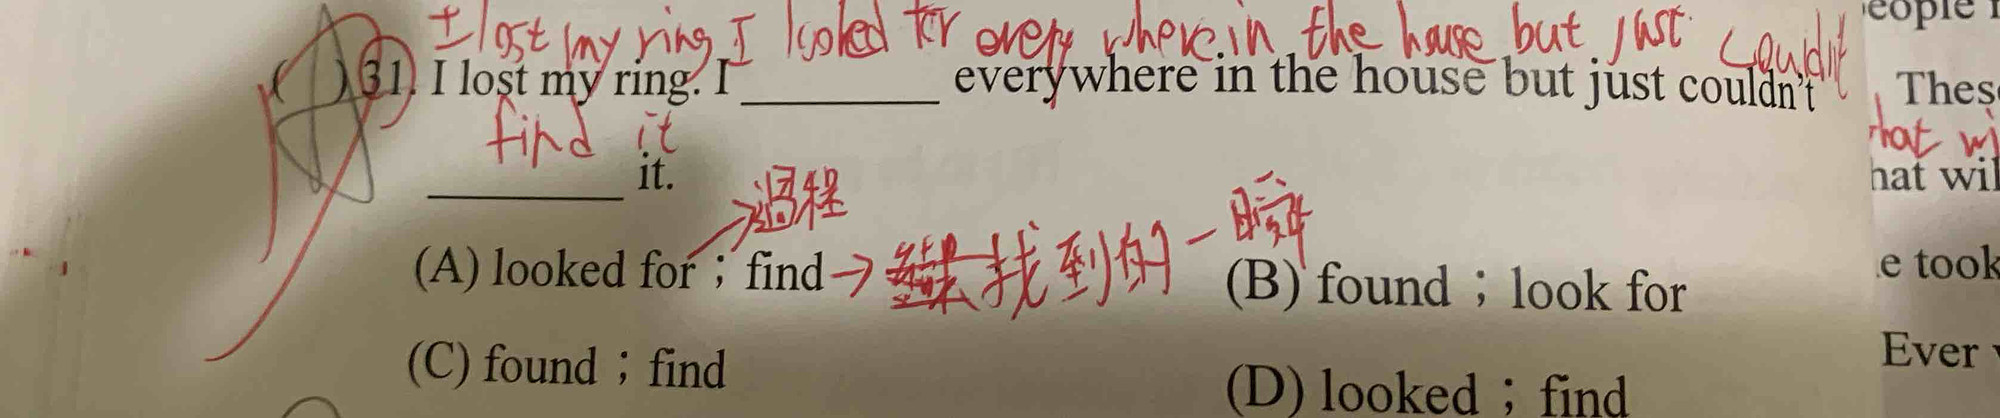 I lost my ring I looked for every where in the house but just couldn't
eople
( A )31. I lost my ring. I ________ everywhere in the house but just couldn't
These
find it
that wi
________ it.
hat wil
過程
(A) looked for ; find → 找到的一瞬
(B) found ; look for
e took
(C) found ; find
Ever
(D) looked ; find